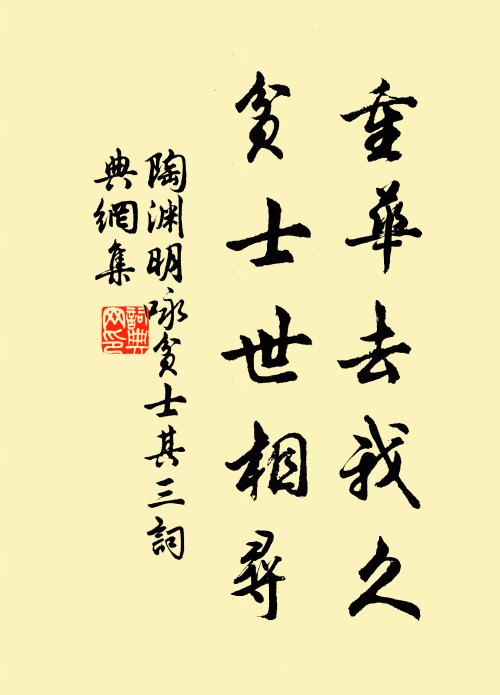 重華去我久
貧士世相尋
陶渊明咏貧士其三詞
典網集
詞典网印